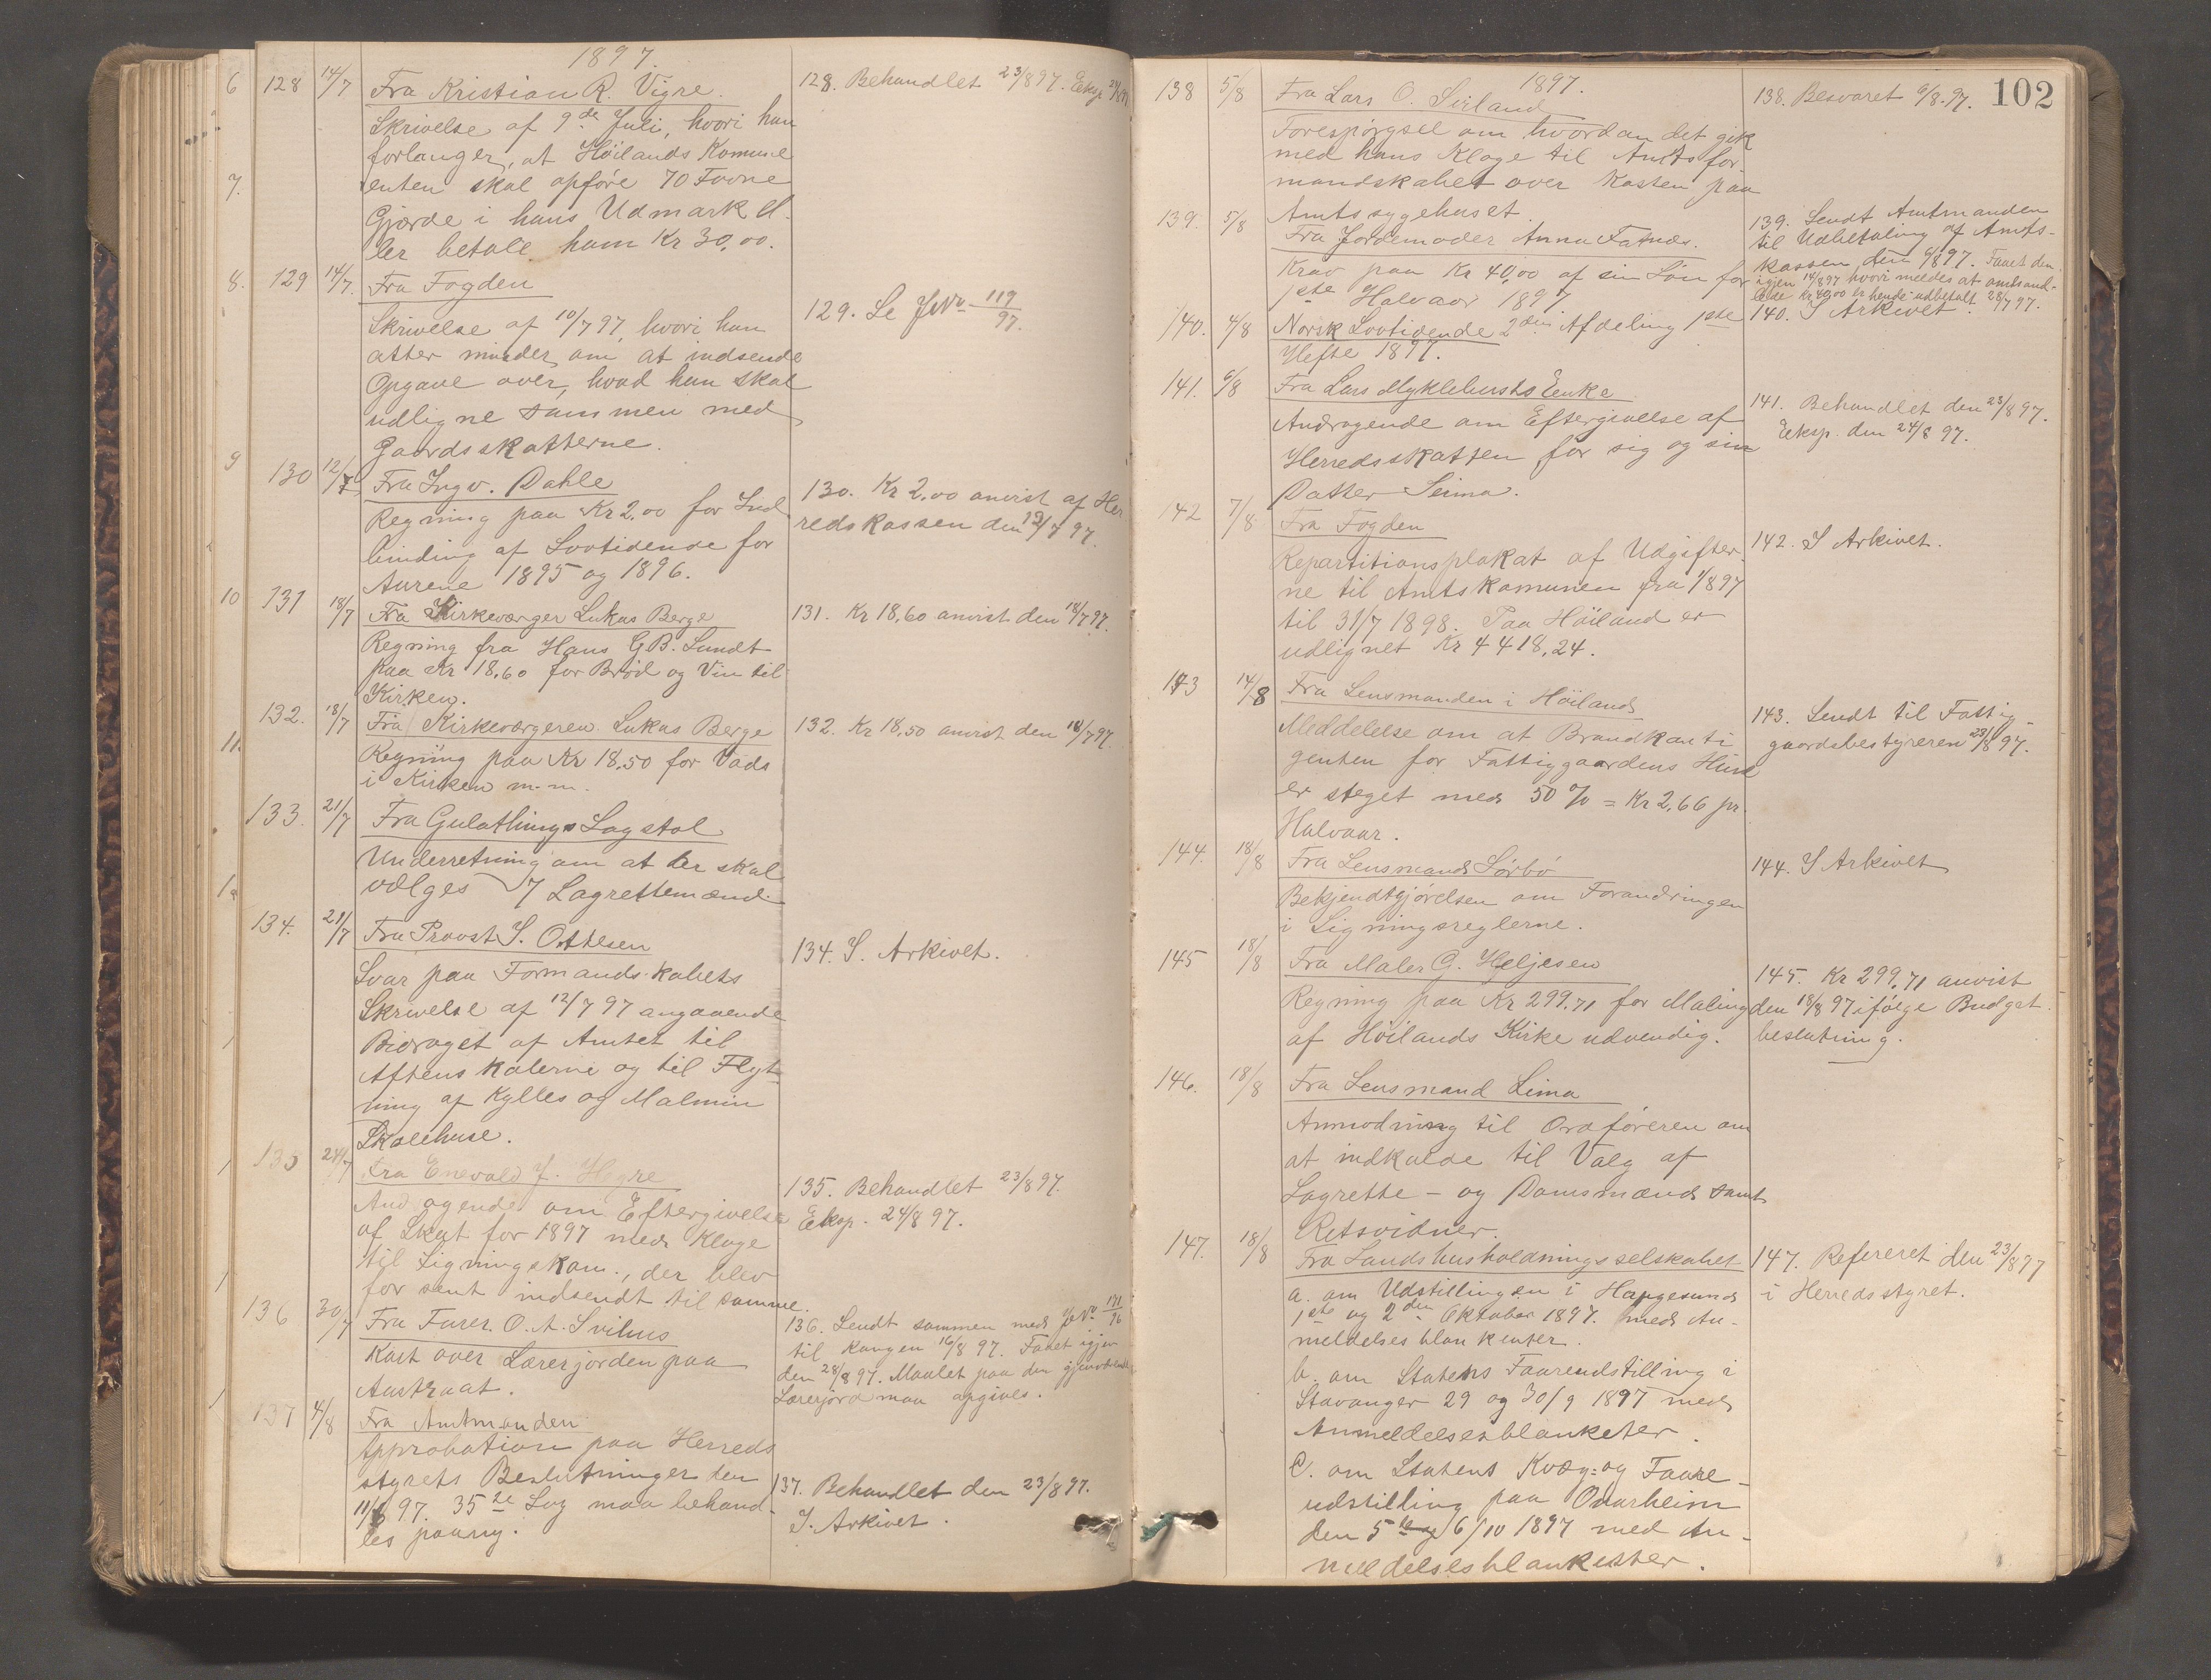 1897.
128 14/7 Fra Kristian R. Vigre.
Skrivelse af 9de Juli, hvori han
forlanger, at Höilands Komune
enten skal opföre 70 Favne
Gjærde i hans Udmark el-
ler betale ham Kr 30,00.
128. Behandlet 23/8 97. Eksp. 24/8 97
129 14/7. Fra Fogden
Skrivelse af 10/7 97, hvori han
atter minder om at indsende
Opgave over, hvad han skal
udligne sammen med
Gaardsskatterne.
129. Se JNo 119/97.
130 12/7 Fra Ingv. Dahle
Regning paa Kr 2,00 for Ind
binding af Lovtidende for
Aarene 1895 og 1896.
130. Kr 2,00 anvist af Her
redskassen den 12/7 97.
131 18/7 Fra Kirkeværger Lukas Berge
Regning fra Hans G B. Sundt
paa Kr 18,60 for Bröd og Vin til
Kirken.
131. Kr 18,60 anvist den 18/7 97.
132. 18/7 Fra Kirkeværgeren Lukas Berge
Regning paa Kr 18,50 for Vads
i Kirken m. m.
132. Kr 18,50 anvist den 18/7 97.
133. 21/7 Fra Gulathings Lagstol
Underretning om at der skal
vælges 7 Lagrettemænd.
134. 21/7 Fra Provst S. Ottesen
Svar paa Formandskabets
Skrivelse af 12/7 97 angaaende
Bidraget af Amtet til
Aftenskolerne og til Flyt-
ning af Kylles og Malmin
Skolehuse.
134. I. Arkivet.
135 24/7 Fra Enevald J. Hegre
Andragende om Eftergivelse
af Skat for 1897 med Klage
til Ligningskom., der blev
for sent indsendt til samme.
135. Behandlet 23/8 97.
Eksp. 24/8 97.
136 30/7 Fra Furer. O. A. Svihus
Kart over Lærerjorden paa
Austraat.
136. Sendt sammen med JNo 171/96
til Kongen 16/8 97. Faaet igjen
den 28/8 97. Maalet paa den gjenværende
Lærerjord maa opgives.
137 4/8 Fra Amtmanden
Approbation paa Herreds
styrets Beslutninger den
11/6 97. 35te Sag maa behand-
les paany.
137. Behandlet den 23/8 97.
I. Arkivet.
102
1897.
138 5/8 Fra Lars O. Sviland
Forespörgsel om hvordan det gik
med hans Klage til Amtsfor
mandskabet over Kosten paa
Amtssygehuset.
138. Besvaret 6/8. 97.
139. 5/8 Fra Jordemoder Anna Fatnæs.
Krav paa Kr 40,00 af sin Lön for
1ste Halvaar 1897
139. Sendt Amtmanden
til Udbetaling af Amts-
kassen den 6/8 97. Faaet den
igjen 14/8 97 hvori meldes at omhand-
lede Kr 40,00 er hende udbetalt 28/7 97.
140. 4/8 Norsk Lovtidende 2den Afdeling 1ste
Hefte 1897.
140. I Arkivet.
141. 6/8 Fra Lars Myklebusts Enke
Andragende om Eftergivelse af
Herredsskatten for sig og sin
Datter Serina.
141. Behandlet den 23/8 97.
Eksp. den 24/8 97.
142 7/8 Fra Fogden
Repartitionsplakat af Udgifter-
ne til Amtskomunen fra 1/8 97
til 31/7 1898. Paa Höiland er
udlignet Kr 4418,24.
142. I Arkivet.
143 14/8 Fra Lensmanden i Höiland
Meddelelse om at Brandkonti
genten for Fattiggaardens Huse
er steget med 50 % = Kr 2,66 pr.
Halvaar.
143. Sendt til Fattig-
gaardsbestyreren 23/8 97.
144. 18/8 Fra Lensmand Sörbö
Bekjendtgjörelsen om Forandringen
i Ligningsreglerne.
144. I Arkivet
145 18/8 Fra Maler G. Heljesen
Regning paa Kr 299.71 for Maling
af Höilands Kirke udvendig.
145. Kr 299,71 anvist
den 18/8 97 ifölge Budget
beslutning.
146. 18/8 Fra Lensmand Lima
Anmodning til Ordföreren om
at indkalde til Valg af
Lagrette- og Domsmænd samt
Retsvidner.
147. 18/8 Fra Landshusholdningsselskabet
a. om Udstillingen i Haugesund
1ste og 2den Oktober 1897. med An-
meldelsesblanketter.
b. om Statens Faareudstilling i
Stavanger 29 og 30/9 1897 med
Anmeldelsesblanketer.
c. om Statens Kvæg- og Faare-
udstilling paa Ovarheim
den 5te og 6/10 1897 med An-
meldelsesblanketter.
147. Refereret den 23/8 97
i Herredsstyret.